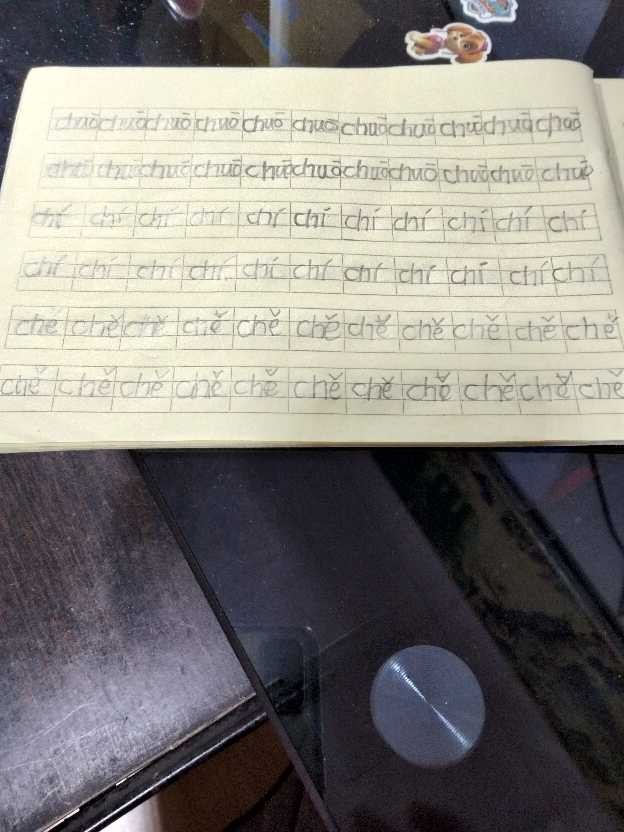 chuō chuō chuō chuō chuō chuō chuō chuō chuō chuō chuō
chuō chuō chuō chuō chuō chuō chuō chuō chuō chuō chuō
chí chí chí chí chí chí chí chí chí chí chí
chí chí chí chí chí chí chí chí chí chí chí
chě chě chě chě chě chě chě chě chě chě chě
chě chě chě chě chě chě chě chě chě chě chě